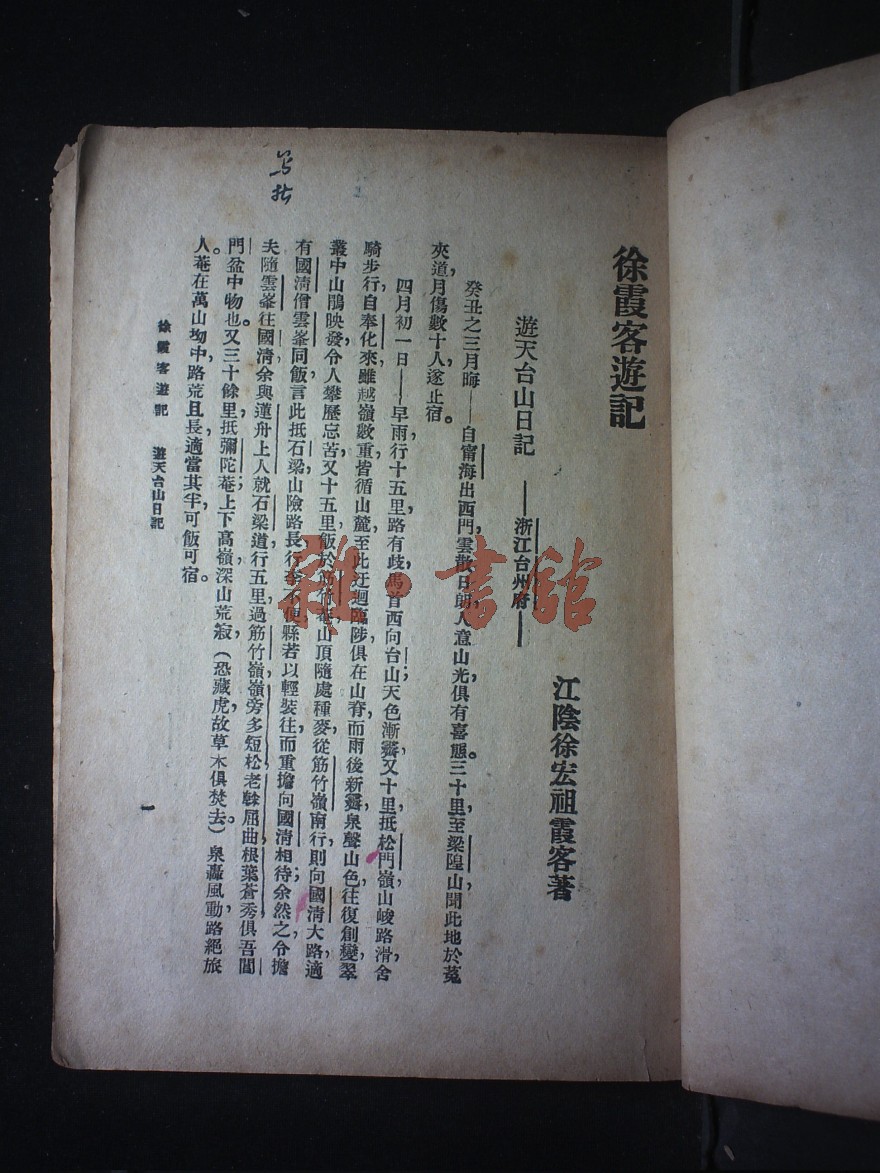 徐霞客遊記
江陰徐宏祖霞客著
遊天台山日記 ——浙江台州府——
癸丑之三月晦——自甯海出西門，雲散日朗，人意山光，俱有喜態。三十里，至梁隍山。聞此地於菟
夾道，月傷數十人，遂止宿。
四月初一日——早雨。行十五里，路有歧，馬首西向台山，天色漸霽；又十里，抵松門嶺，山峻路滑，舍
騎步行。自奉化來，雖越嶺數重，皆循山麓，至此迂迴臨陟，俱在山脊。而雨後新霽，泉聲山色，往復創變，翠
叢中山鵑映發，令人攀歷忘苦。又十五里，飯於筋竹菴。山頂隨處種麥。從筋竹嶺南行，則向國清大路。適
有國清僧雲峯同飯，言此抵石梁，山險路長，行李不便，若以輕裝往，而重擔向國清相待。余然之，令擔
夫隨雲峯往國清，余與蓮舟上人就石梁道。行五里，過筋竹嶺，嶺旁多短松，老榦屈曲，根葉蒼秀，俱吾閶
門盆中物也。又三十餘里，抵彌陀菴；上下高嶺，深山荒寂，（恐藏虎，故草木俱焚去。）泉轟風動，路絕旅
人。菴在萬山坳中，路荒且長，適當其半，可飯可宿。
徐霞客遊記 遊天台山日記
一
雜·書館